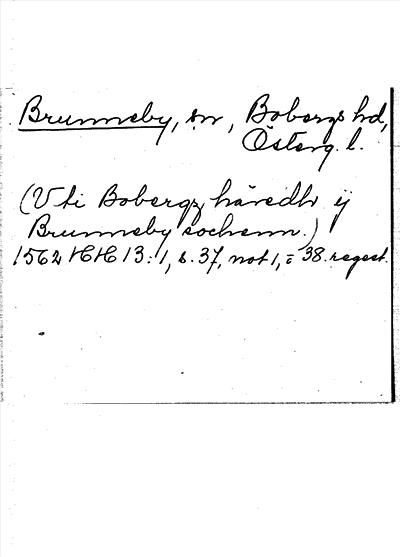 Brunneby, sn, Bobergs hd,
Österg. l.
(Vti Bobergz häredh ij
Brunneby sochenn.)
1562 HH 13:1, s. 37, not 1, = 38. regest.